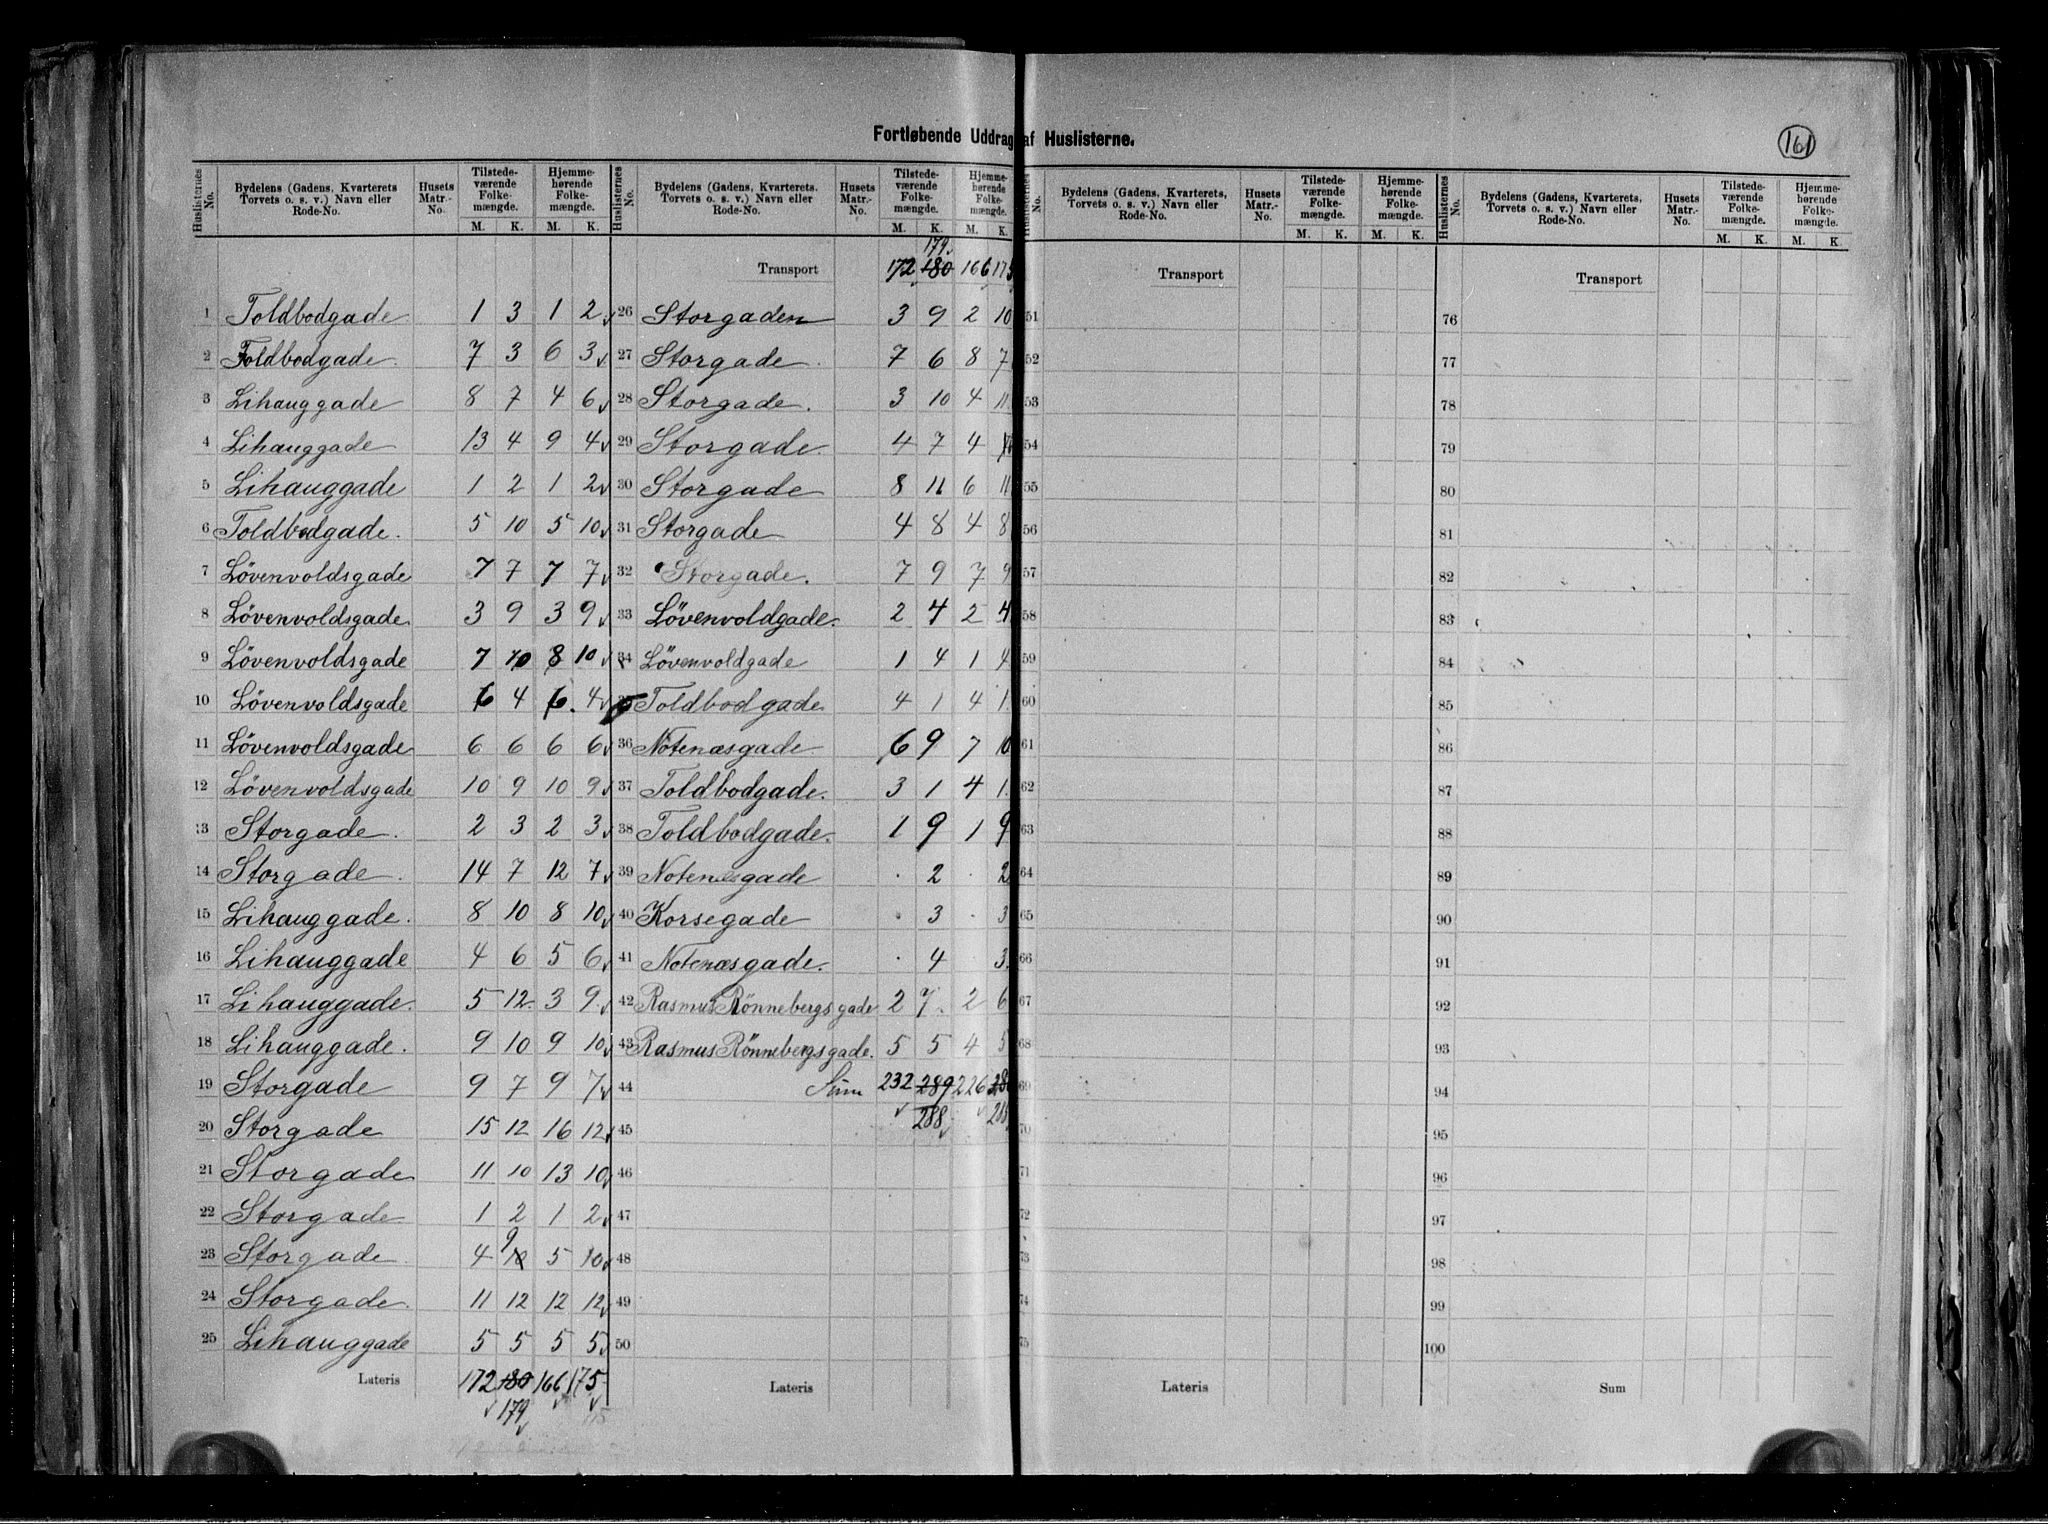 Fortløbende Uddrag af Huslisterne.
161
Huslisternes No. | Bydelens (Gadens, Kvarterets Torvets o. s. v.) Navn eller Rode-No. | Husets Matr.-No. | Tilstedeværende Folkemængde. M. K. | Hjemmehørende Folkemængde. M. K.
1 Toldbodgade 1 3 1 2
2 Toldbodgade. 7 3 6 3
3 Lihauggade 8 7 4 6
4 Lihauggade 13 4 9 4
5 Lihauggade 1 2 1 2
6 Toldbodgade. 5 10 5 10
7 Lövenvoldsgade 7 7 7 7
8 Lövenvoldsgade 3 9 3 9
9 Lövenvoldsgade 7 10 8 10
10 Lövenvoldsgade 6 4 6 4
11 Lövenvoldsgade 6 6 6 6
12 Lövenvoldsgade 10 9 10 9
13 Storgade. 2 3 2 3
14 Storgade. 14 7 12 7
15 Lihauggade. 8 10 8 10
16 Lihauggade 4 6 5 6
17 Lihauggade. 5 12 3 9
18 Lihauggade. 9 10 9 10
19 Storgade 9 7 9 7
20 Storgade 15 12 16 12
21 Storgade 11 10 13 10
22 Storgade 1 2 1 2
23 Storgade. 4 9 5 10
24 Storgade. 11 12 12 12
25 Lihauggade 5 5 5 5
Lateris 172 180 166 175
179
Huslisternes No. | Bydelens (Gadens, Kvarterets, Torvets o. s. v.) Navn eller Rode-No. | Husets Matr.-No. | Tilstedeværende Folkemængde. M. K. | Hjemmehørende Folkemængde. M. K.
179
Transport 172 180 166 175
26 Storgaden 3 9 2 10
27 Storgade. 7 6 8 7
28 Storgade. 3 10 4 11
29 Storgade. 4 7 4
30 Storgade 8 11 6 11
31 Storgade 4 8 4 8
32 Storgade. 7 9 7 9
33 Lövenvoldgade. 2 4 2 4
34 Lövenvoldgade 1 4 1 4
35 Toldbodgade 4 1 4 1
36 Notenæsgade 6 9 7 10
37 Toldbodgade. 3 1 4 1
38 Toldbodgade. 1 9 1 9
39 Notenæsgade . 2 . 2
40 Korsegade . 3 . 3
41 Notenæsgade. . 4 3
42 Rasmus Rönnebergsgade 2 7 2 6
43 Rasmus Rönnebergsgade. 5 5 4 5
44 Sum 232 289 226
288
45
46
47
48
49
50
Lateris
Huslisternes No. | Bydelens (Gadens, Kvarterets, Torvets o. s. v.) Navn eller Rode-No. | Husets Matr.-No. | Tilstedeværende Folkemængde. M. K. | Hjemmehørende Folkemængde. M. K.
Transport
51
52
53
54
55
56
57
58
59
60
61
62
63
64
65
66
67
68
69
70
71
72
73
74
75
Lateris
Huslisternes No. | Bydelens (Gadens, Kvarterets, Torvets o. s. v.) Navn eller Rode-No. | Husets Matr.-No. | Tilstedeværende Folkemængde. M. K. | Hjemmehørende Folkemængde. M. K.
Transport
76
77
78
79
80
81
82
83
84
85
86
87
88
89
90
91
92
93
94
95
96
97
98
99
100
Sum